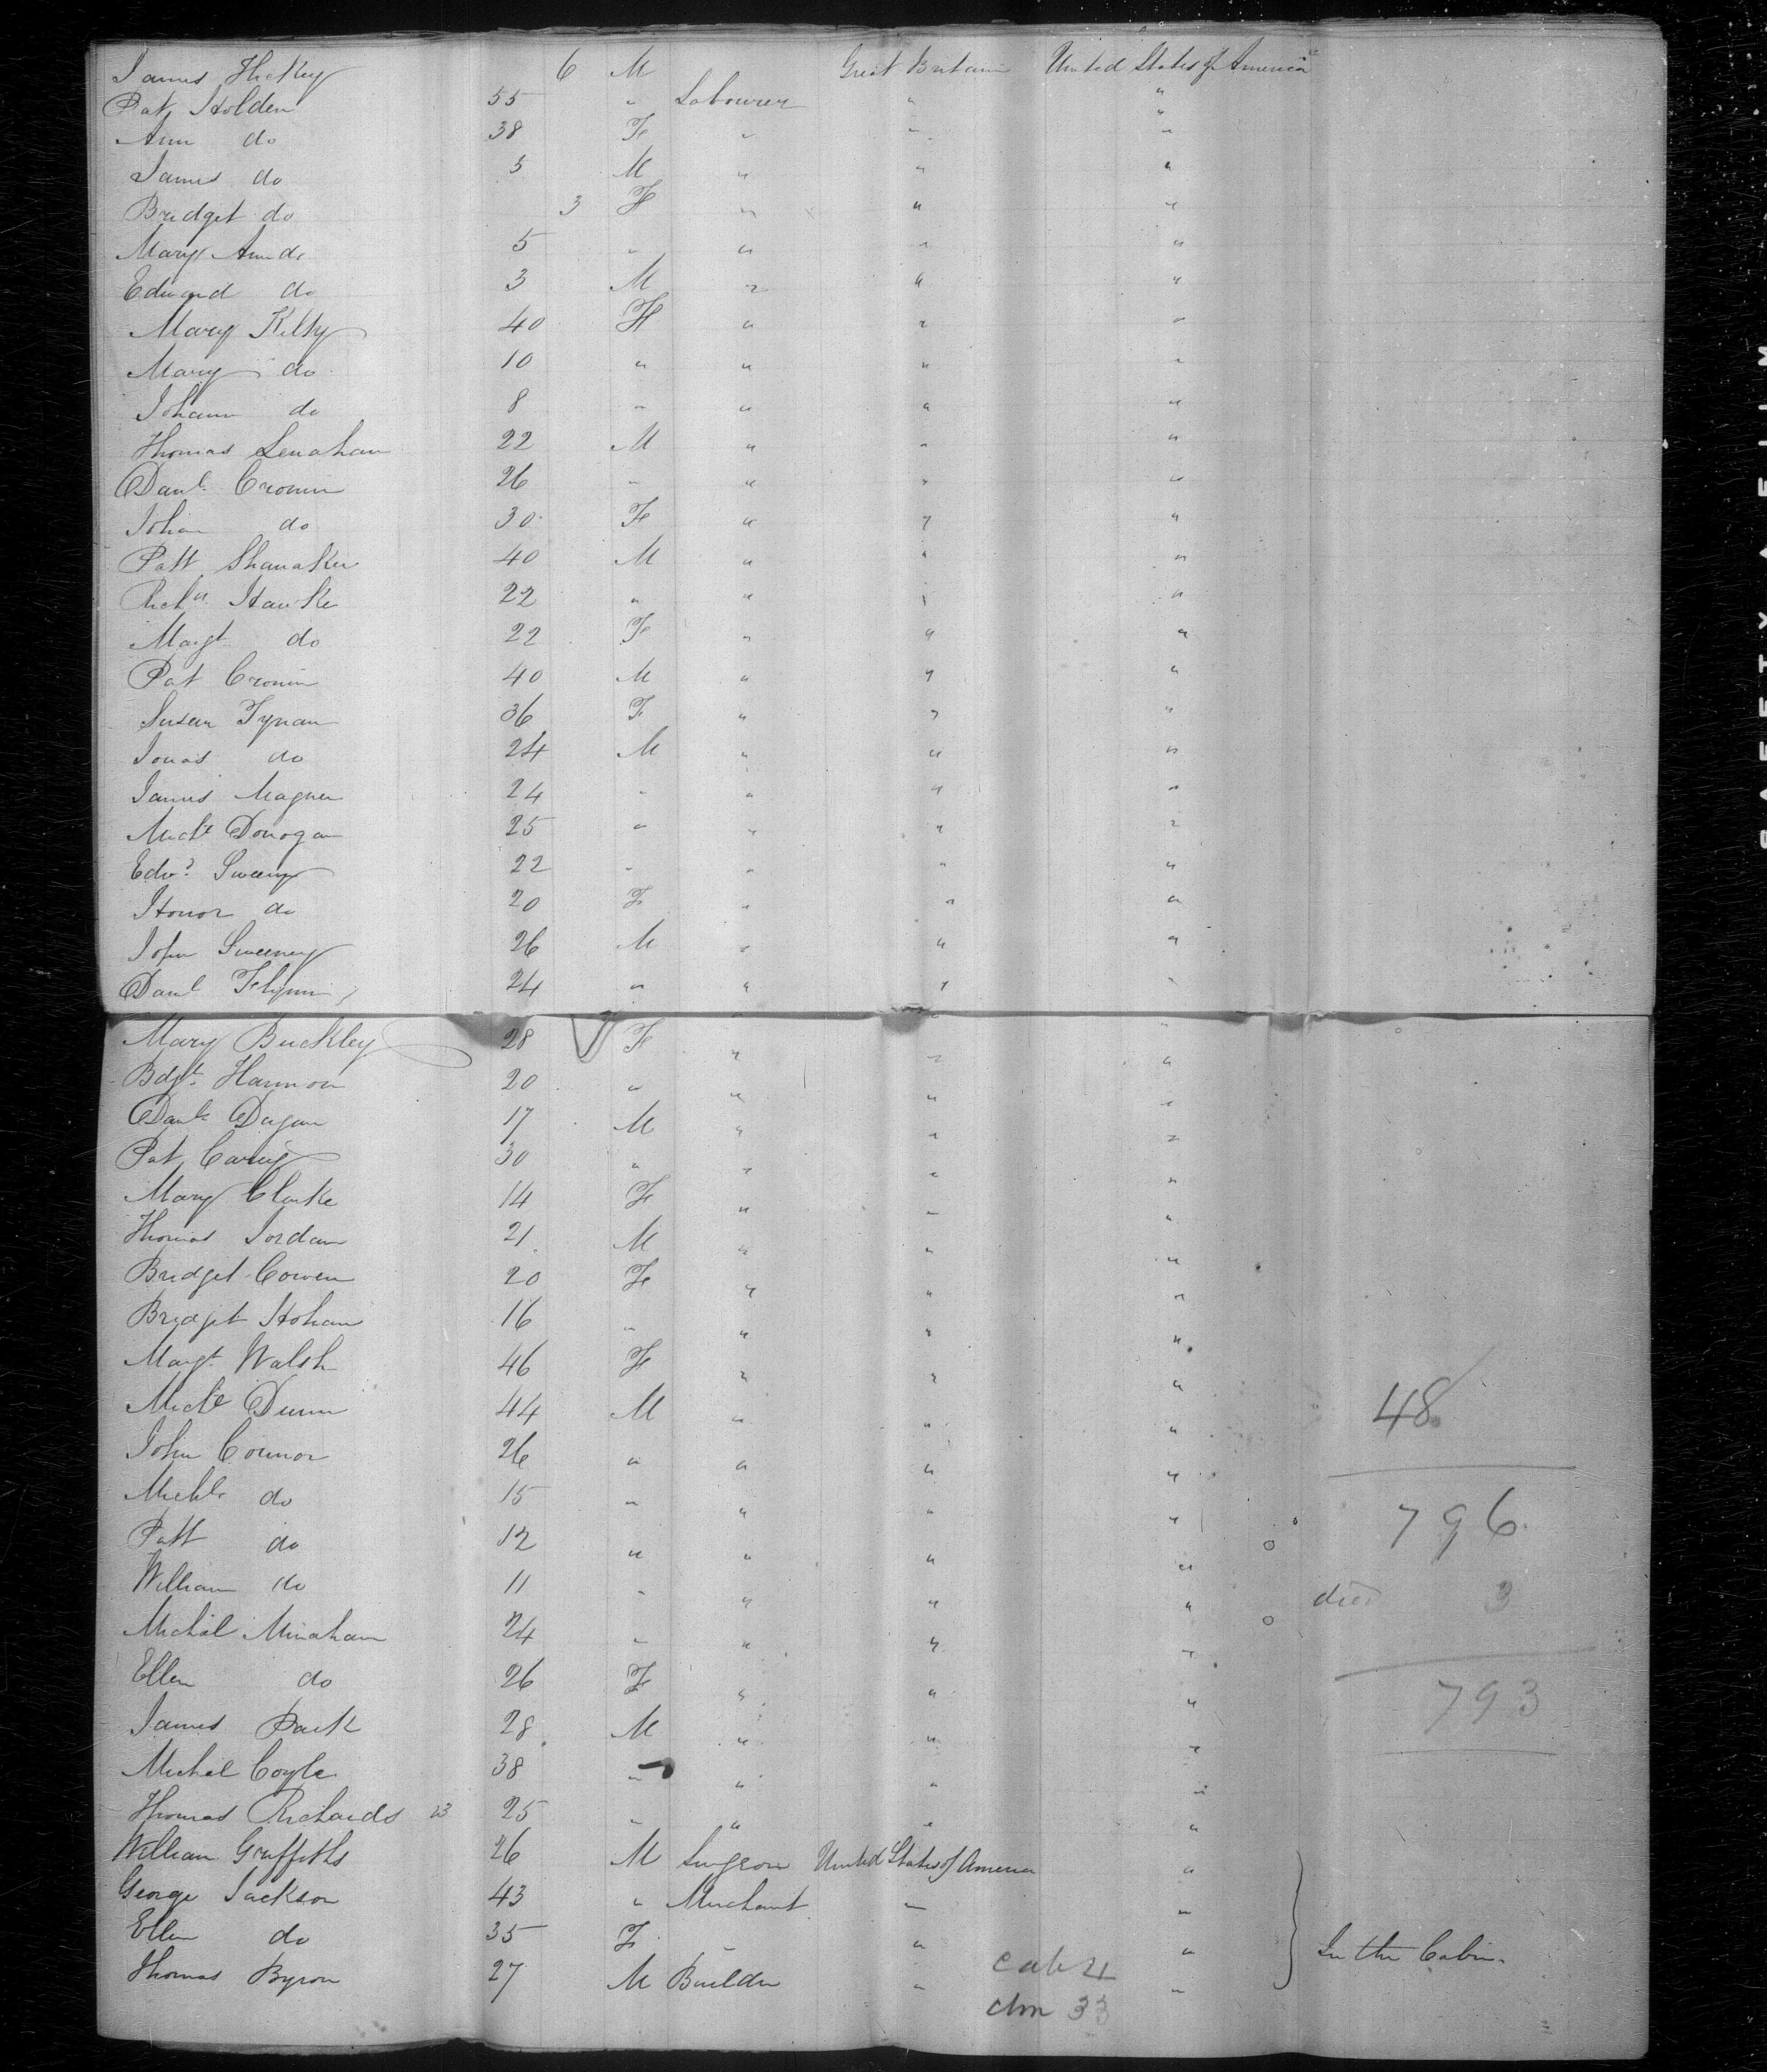 James Hickey 6 M Great Britain United States of America
Pat Holden 55 " Labourer " "
Ann do 38 F " " "
James do 5 M " " "
Bridget do 3 F " " "
Mary Ann do 5 " " " "
Edward do 3 M " " "
Mary Kelly 40 F " " "
Mary do 10 " " " "
Johann do 8 " " " "
Thomas Lenahan 22 M " " "
Danl Cronin 26 " " " "
Johan do 30 F " " "
Patt Shanaker 40 M " " "
Richd Hawke 22 " " " "
Margt do 22 F " " "
Pat Cronin 40 M " " "
Susan Tynan 36 F " " "
Jonas do 24 M " " "
James Magner 24 " " " "
Michl Donogan 25 " " " "
Edwd Sweeny 22 " " " "
Honor do 20 F " " "
John Sweeney 26 M " " "
Danl Flynn 24 " " " "
Mary Buckley 28 F " " "
Bdgt Hannon 20 " " " "
Danl Dugan 17 M " " "
Pat Carey 30 " " " "
Mary Clarke 14 F " " "
Thomas Jordan 21 M " " "
Bridget Cowen 20 F " " "
Bridget Hohan 16 " " " "
Margt Walsh 46 F " " "
Michl Dunn 44 M " " " 48
John Connor 26 " " " "
Michl do 15 " " " " 796
Patt do 12 " " " "
William do 11 " " " " died 3
Michal Minahan 24 " " " "
Ellen do 26 F " " " 793
James Park 28 M " " "
Michal Coyle 38 " " " "
Thomas Richards 23 25 " " " "
William Griffiths 26 M Surgeon United States of America "
George Jackson 43 " Merchant " "
Ellen do 35 F " " " In the Cabin
Thomas Byron 27 M Builder " "
cab 4
chn 33
SAFETY FILM